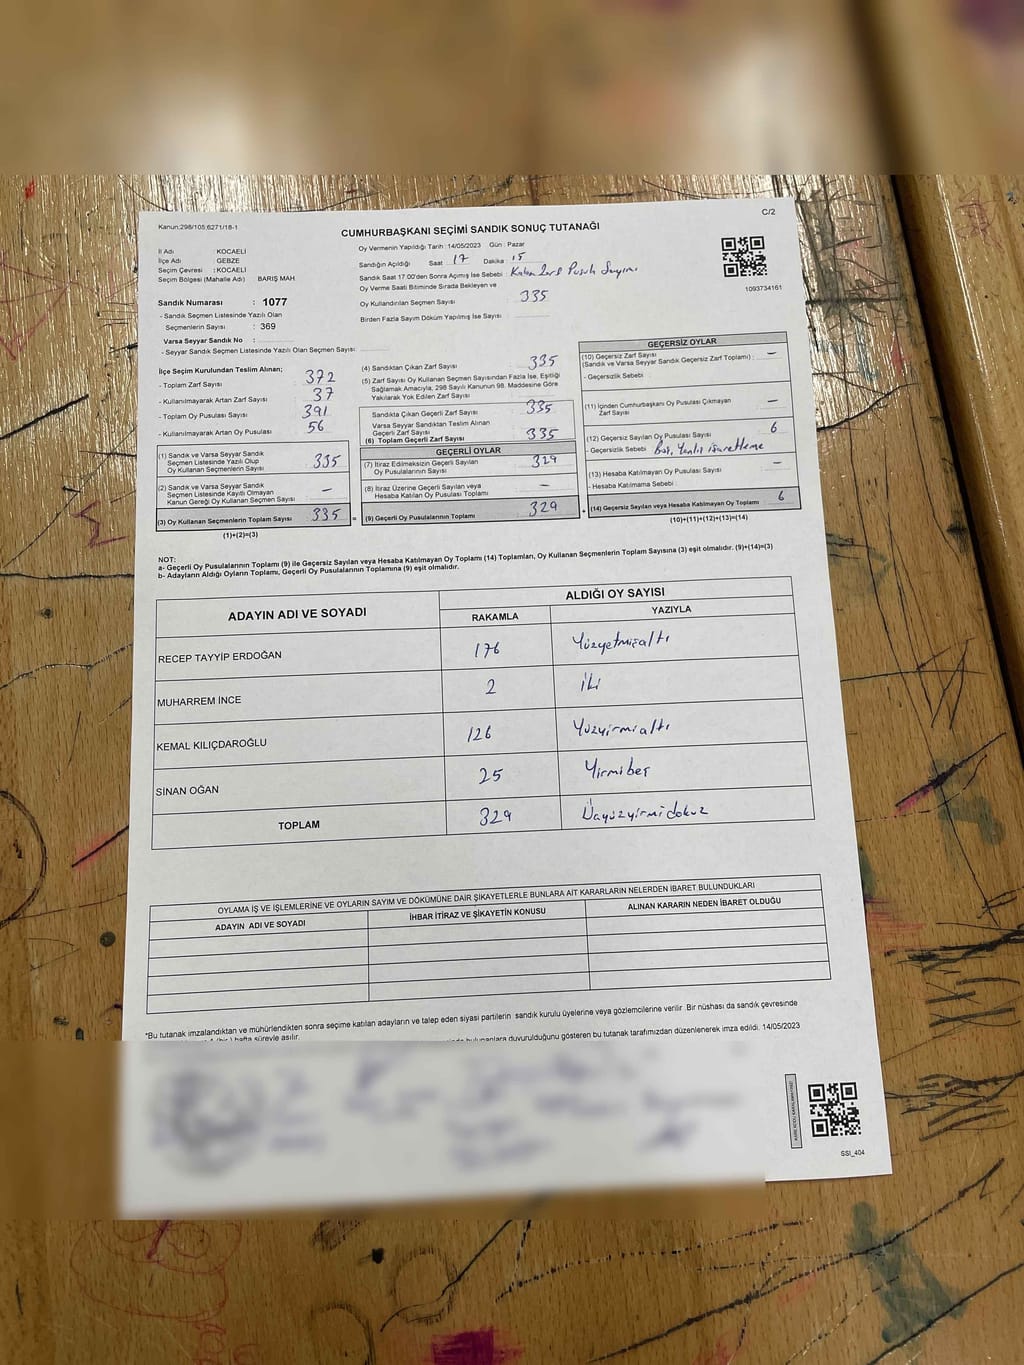 C/2
Kanun:298/105;6271/18-1
CUMHURBAŞKANI SEÇİMİ SANDIK SONUÇ TUTANAĞI
İl Adı KOCAELİ
İlçe Adı GEBZE
Seçim Çevresi : KOCAELİ
Seçim Bölgesi (Mahalle Adı) BARIŞ MAH.
Oy Vermenin Yapıldığı Tarih : 14/05/2023 Gün : Pazar
Sandığın Açıldığı Saat 17 Dakika : 15
Sandık Saat 17:00'den Sonra Açılmış İse Sebebi : Kalan Zarf Pusula Sayımı
Oy Verme Saati Bitiminde Sırada Bekleyen ve
Oy Kullandırılan Seçmen Sayısı 335
Birden Fazla Sayım Döküm Yapılmış İse Sayısı :
1093734161
Sandık Numarası : 1077
- Sandık Seçmen Listesinde Yazılı Olan
Seçmenlerin Sayısı : 369
Varsa Seyyar Sandık No :
- Seyyar Sandık Seçmen Listesinde Yazılı Olan Seçmen Sayısı:
İlçe Seçim Kurulundan Teslim Alınan;
- Toplam Zarf Sayısı 372
- Kullanılmayarak Artan Zarf Sayısı 37
- Toplam Oy Pusulası Sayısı 391
- Kullanılmayarak Artan Oy Pusulası 56
(1) Sandık ve Varsa Seyyar Sandık
Seçmen Listesinde Yazılı Olup
Oy Kullanan Seçmenlerin Sayısı 335
(2) Sandık ve Varsa Seyyar Sandık
Seçmen Listesinde Kayıtlı Olmayan
Kanun Gereği Oy Kullanan Seçmen Sayısı : –
(3) Oy Kullanan Seçmenlerin Toplam Sayısı 335 =
(1)+(2)=(3)
(4) Sandıktan Çıkan Zarf Sayısı 335
(5) Zarf Sayısı Oy Kullanan Seçmen Sayısından Fazla İse, Eşitliği
Sağlamak Amacıyla; 298 Sayılı Kanunun 98. Maddesine Göre
Yakılarak Yok Edilen Zarf Sayısı
Sandıkta Çıkan Geçerli Zarf Sayısı 335
Varsa Seyyar Sandıktan Teslim Alınan
Geçerli Zarf Sayısı
(6) Toplam Geçerli Zarf Sayısı 335
GEÇERLİ OYLAR
(7) İtiraz Edilmeksizin Geçerli Sayılan
Oy Pusulalarının Sayısı 329
(8) İtiraz Üzerine Geçerli Sayılan veya
Hesaba Katılan Oy Pusulası Toplamı –
(9) Geçerli Oy Pusulalarının Toplamı 329 +
GEÇERSİZ OYLAR
(10) Geçersiz Zarf Sayısı
(Sandık ve Varsa Seyyar Sandık Geçersiz Zarf Toplamı) : –
- Geçersizlik Sebebi :
(11) İçinden Cumhurbaşkanı Oy Pusulası Çıkmayan
Zarf Sayısı –
(12) Geçersiz Sayılan Oy Pusulası Sayısı 6
- Geçersizlik Sebebi Boş, Yanlış işaretleme
(13) Hesaba Katılmayan Oy Pusulası Sayısı –
- Hesaba Katılmama Sebebi :
(14) Geçersiz Sayılan veya Hesaba Katılmayan Oy Toplamı 6
(10)+(11)+(12)+(13)=(14)
NOT:
a- Geçerli Oy Pusulalarının Toplamı (9) ile Geçersiz Sayılan veya Hesaba Katılmayan Oy Toplamı (14) Toplamları, Oy Kullanan Seçmenlerin Toplam Sayısına (3) eşit olmalıdır. (9)+(14)=(3)
b- Adayların Aldığı Oyların Toplamı, Geçerli Oy Pusulalarının Toplamına (9) eşit olmalıdır.
ADAYIN ADI VE SOYADI
ALDIĞI OY SAYISI
RAKAMLA YAZIYLA
RECEP TAYYİP ERDOĞAN 176 Yüzyetmişaltı
MUHARREM İNCE 2 İki
KEMAL KILIÇDAROĞLU 126 Yüzyirmialtı
SİNAN OĞAN 25 Yirmibeş
TOPLAM 329 Üçyüzyirmidokuz
OYLAMA İŞ VE İŞLEMLERİNE VE OYLARIN SAYIM VE DÖKÜMÜNE DAİR ŞİKAYETLERLE BUNLARA AİT KARARLARIN NELERDEN İBARET BULUNDUKLARI
ADAYIN ADI VE SOYADI İHBAR İTİRAZ VE ŞİKAYETİN KONUSU ALINAN KARARIN NEDEN İBARET OLDUĞU
*Bu tutanak imzalandıktan ve mühürlendikten sonra seçime katılan adayların ve talep eden siyasi partilerin sandık kurulu üyelerine veya gözlemcilerine verilir. Bir nüshası da sandık çevresinde
(bir) hafta süreyle asılır.
bulunanlara duyurulduğunu gösteren bu tutanak tarafımızdan düzenlenerek imza edildi. 14/05/2023
SSI_404